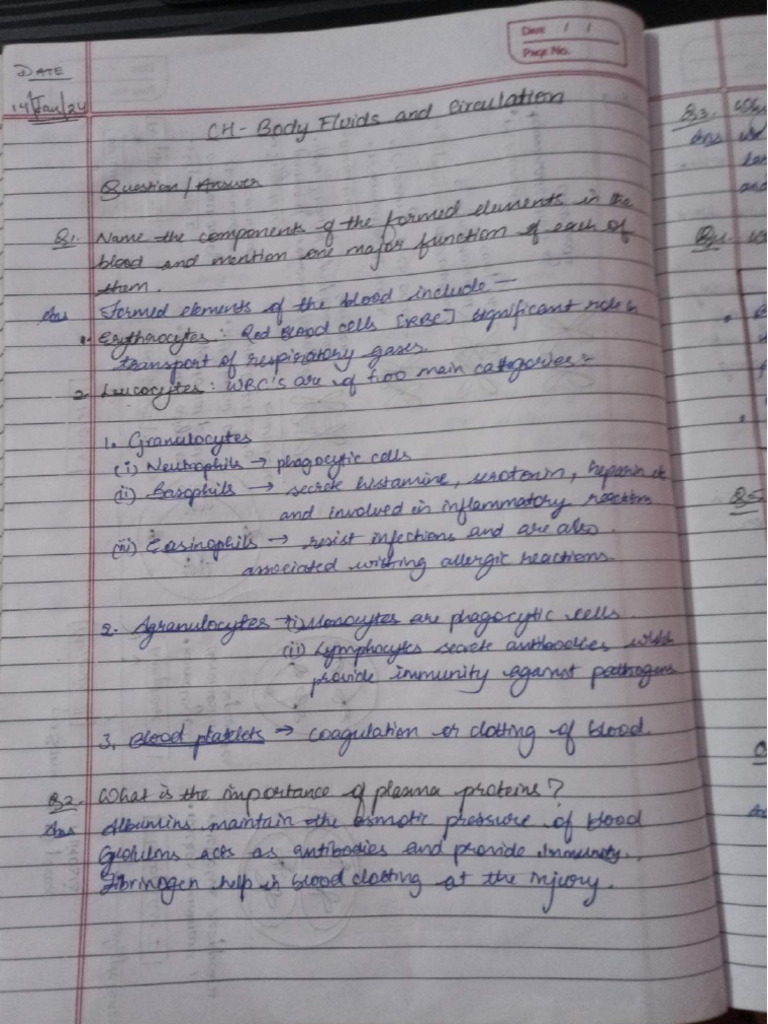 Date / /
Page No.
DATE
14/Jan/24
CH- Body Fluids and Circulation
Question / Answer
Q1. Name the components of the formed elements in the
blood and mention one major function of each of
them.
Ans Formed elements of the blood include -
1. Erythrocytes: Red Blood cells [RBC] significant role in
transport of respiratory gases.
2. Leucocytes: WBC's are of two main categories:-
1. Granulocytes
(i) Neutrophils → phagocytic cells
(ii) Basophils → secrete histamine, serotonin, heparin etc
and involved in inflammatory reaction
(iii) Easinophils → resist infections and are also
associated withing allergic reactions.
2. Agranulocytes (i) Monocytes are phagocytic cells
(ii) Lymphocytes secrete antibodies which
provide immunity against pathogens
3. Blood platelets → coagulation or clotting of blood.
Q2. What is the importance of plasma proteins?
Ans Albumins maintain the osmotic pressure of blood
acts as antibodies and provide immunity.
Fibrinogen help in blood clotting at the injury.
Q3.
Ans
and
Q4.
Q5